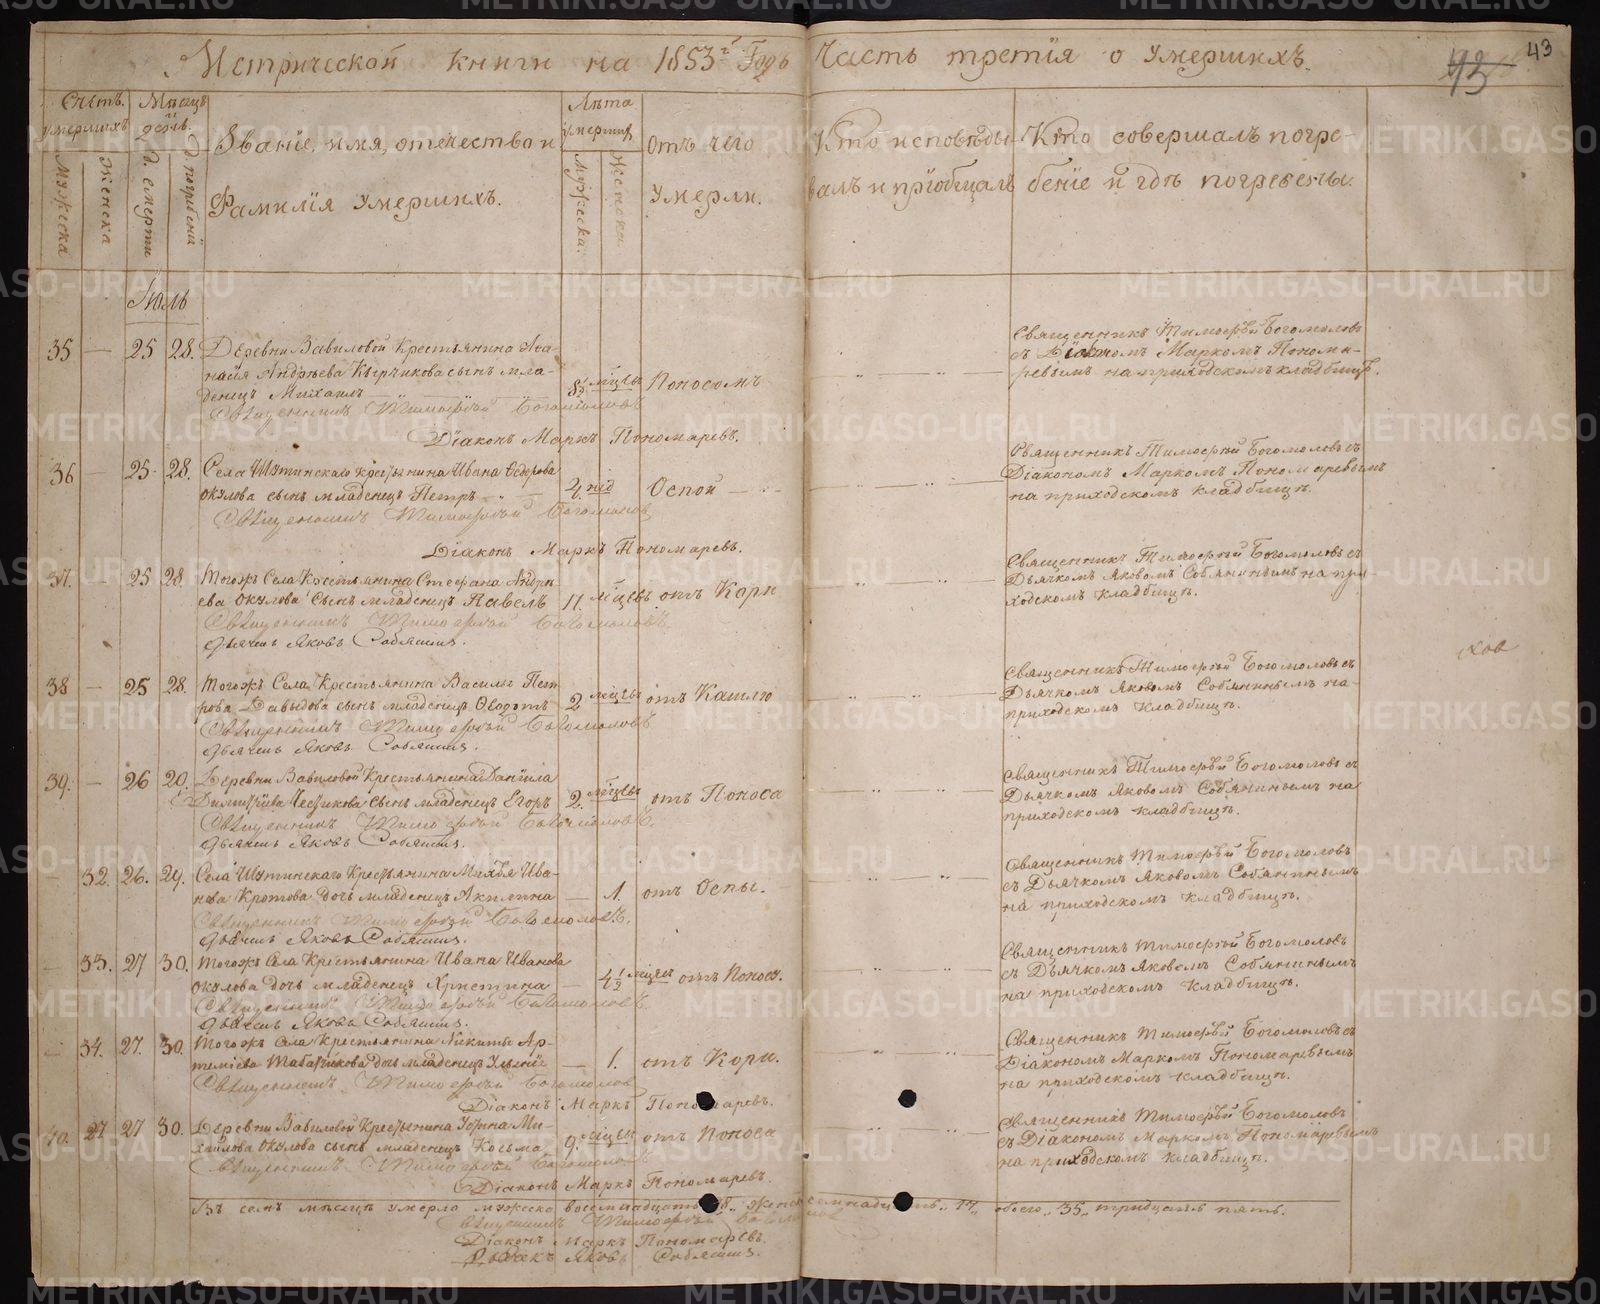 Метрической книги на 1853й Годъ Часть третія о Умершихъ.
43
43
Счетъ умершихъ
Мужеска
Женска
Месяцъ и день
смерти
погребенія
Званіе, имя, отечество и
Фамилія Умершихъ.
Лѣта умершихъ
Мужеска
Женска
Отъ чего
Умерли.
Кто исповѣды-
валъ и пріобщалъ
Кто совершалъ погре-
беніе и гдѣ погребены.
Іюль
35 — 25 28. Деревни Вавиловой Крестьянина Аѳа-
насія Андреева Кырчикова сынъ мла-
денецъ Михаилъ 8½ мцевъ Поносомъ
Священникъ Тимоѳей Богомоловъ
съ Діакономъ Маркомъ Понома-
ревымъ на приходскомъ кладбищѣ.
Священникъ Тимоѳей Богомоловъ
Діаконъ Маркъ Пономаревъ.
36 — 25 28. Села Шутинскаго Крестьянина Ивана Ѳедорова
Окулова сынъ младенецъ Петръ 4 нед Оспой
Священникъ Тимоѳей Богомоловъ съ
Діакономъ Маркомъ Пономаревымъ
на приходскомъ кладбищѣ.
Священникъ Тимоѳей Богомоловъ
Діаконъ Маркъ Пономаревъ.
37. — 25 28 Тогожъ Села Крестьянина Стефана Андре-
ева Окулова Сынъ младенецъ Павелъ 11. мцевъ отъ Кори
Священникъ Тимоѳей Богомоловъ съ
Дьячкомъ Яковомъ Собянинымъ на при-
ходскомъ кладбищѣ.
Священникъ Тимоѳей Богомоловъ
Дьячекъ Яковъ Собянинъ.
38 — 25 28. Тогожъ Села Крестьянина Василья Пет-
рова Давыдова сынъ младенецъ Ѳеодотъ 2 мцевъ отъ Кашлю
Священникъ Тимоѳей Богомоловъ съ
Дьячкомъ Яковомъ Собянинымъ на
приходскомъ кладбищѣ.
Священникъ Тимоѳей Богомоловъ
Дьячекъ Яковъ Собянинъ.
39. — 26 29. Деревни Вавиловой Крестьянина Даніила
сынъ младенецъ Егоръ 2. мцевъ отъ Поноса
Священникъ Тимоѳей Богомоловъ съ
Дьячкомъ Яковомъ Собянинымъ на
приходскомъ кладбищѣ.
Священникъ Тимоѳей Богомоловъ.
Дьячекъ Яковъ Собянинъ.
— 32. 26. 29. Села Шутинскаго Крестьянина Ива-
нова Кротова дочь младенецъ Акилина — 1. отъ Оспы.
Священникъ Тимоѳей Богомоловъ
съ Дьячкомъ Яковомъ Собянинымъ
на приходскомъ кладбищѣ.
Священникъ Тимоѳей Богомоловъ.
Дьячекъ Яковъ Собянинъ.
— 33. 27 30. Тогожъ Села Крестьянина Ивана Иванова
Окулова дочь младенецъ Христина — 4½ мцевъ отъ Поноса.
Священникъ Тимоѳей Богомоловъ
съ Дьячкомъ Яковомъ Собянинымъ
на приходскомъ кладбищѣ.
Священникъ Тимоѳей Богомоловъ
Дьячекъ Яковъ Собянинъ.
— 34. 27. 30. Тогожъ Села Крестьянина Никиты Ар-
дочь младенецъ — 1. отъ Кори.
Священникъ Тимоѳей Богомоловъ съ
Діакономъ Маркомъ Пономаревымъ
на приходскомъ кладбищѣ.
Священникъ Тимоѳей Богомоловъ
Діаконъ Маркъ Пономаревъ.
40. 27 27 30. Деревни Вавиловой Крестьянина Іоанна Ми-
хайлова Окулова сынъ младенецъ Косьма 9. мцевъ отъ Поноса
Священникъ Тимоѳей Богомоловъ
съ Діакономъ Маркомъ Пономаревымъ
на приходскомъ кладбищѣ.
Священникъ Тимоѳей Богомоловъ
Діаконъ Маркъ Пономаревъ.
Въ семъ мѣсяцѣ умерло мужеска восемнадцать 18, женска семнадцать, 17, обоего, 35, тридцать пять.
Священникъ Тимоѳей Богомоловъ
Діаконъ Маркъ Пономаревъ.
Дьячекъ Яковъ Собянинъ.
METRIKI.GASO-URAL.RU